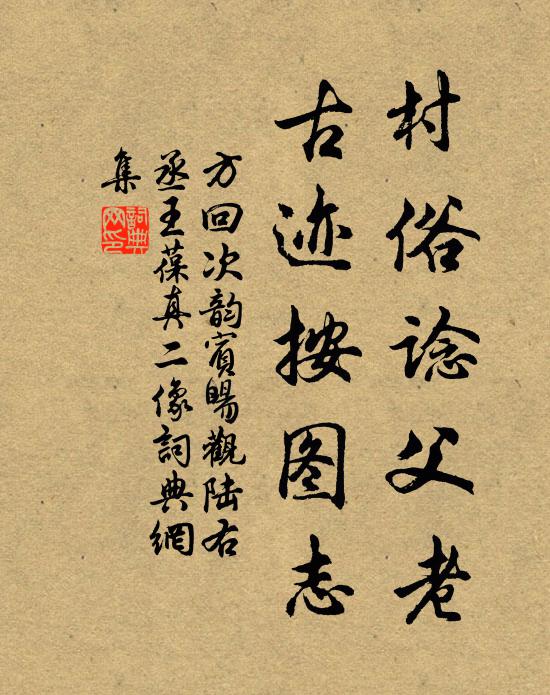 村俗谂父老
古迹按图志
方回次韵賓暘觀陆右
丞王葆真二像詞典網
集
詞典网印